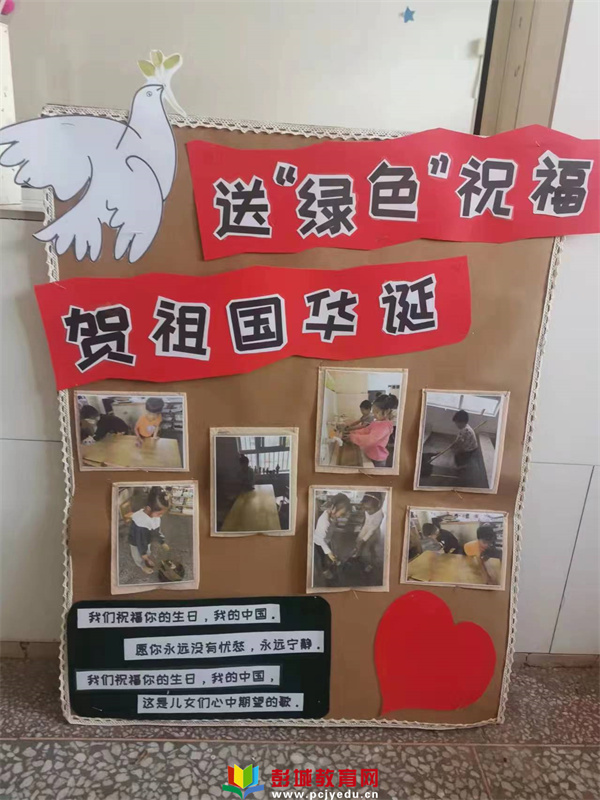 送“绿色”祝福
贺祖国华诞
我们祝福你的生日，我的中国。
愿你永远没有忧愁，永远宁静。
我们祝福你的生日，我的中国，
这是儿女们心中期望的歌。
彭城教育网
www.pcjyedu.cn